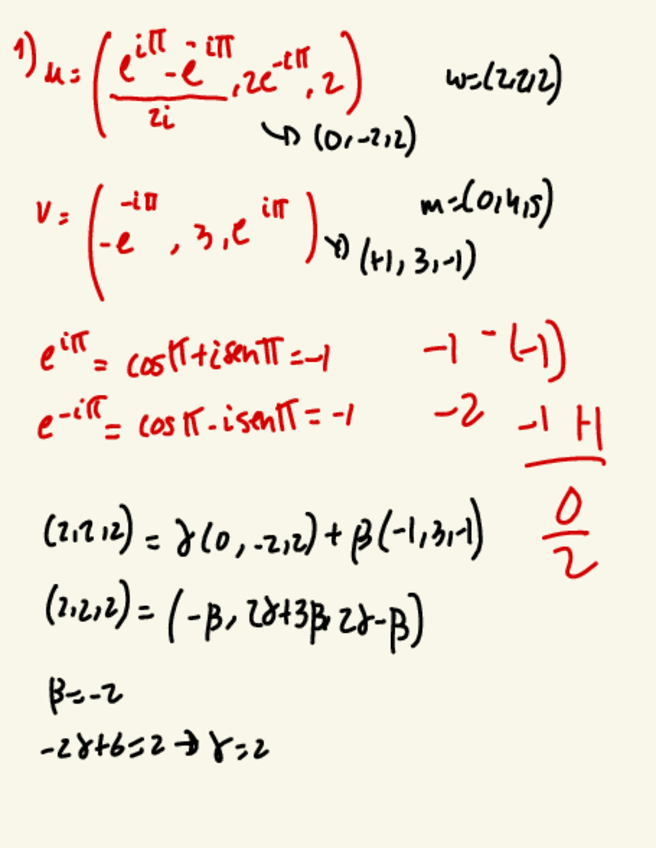 1) u = ( (e^{iπ} - e^{-iπ})/2i , 2e^{-iπ}, 2 ) w=(2,2,2)
↳ (0,-2,2)
v = ( -e^{-iπ} , 3, e^{iπ} ) m=(0,4,5)
→ (+1, 3,-1)
e^{iπ} = cosπ+isenπ=-1 -1 -(-1)
e^{-iπ} = cosπ-isenπ=-1 -2 -1 +1
0/2
(2,2,2) = γ(0,-2,2)+β(-1,3,-1)
(2,2,2) = (-β, 2γ+3β, 2γ-β)
β=-2
-2γ+6=2 → γ=2